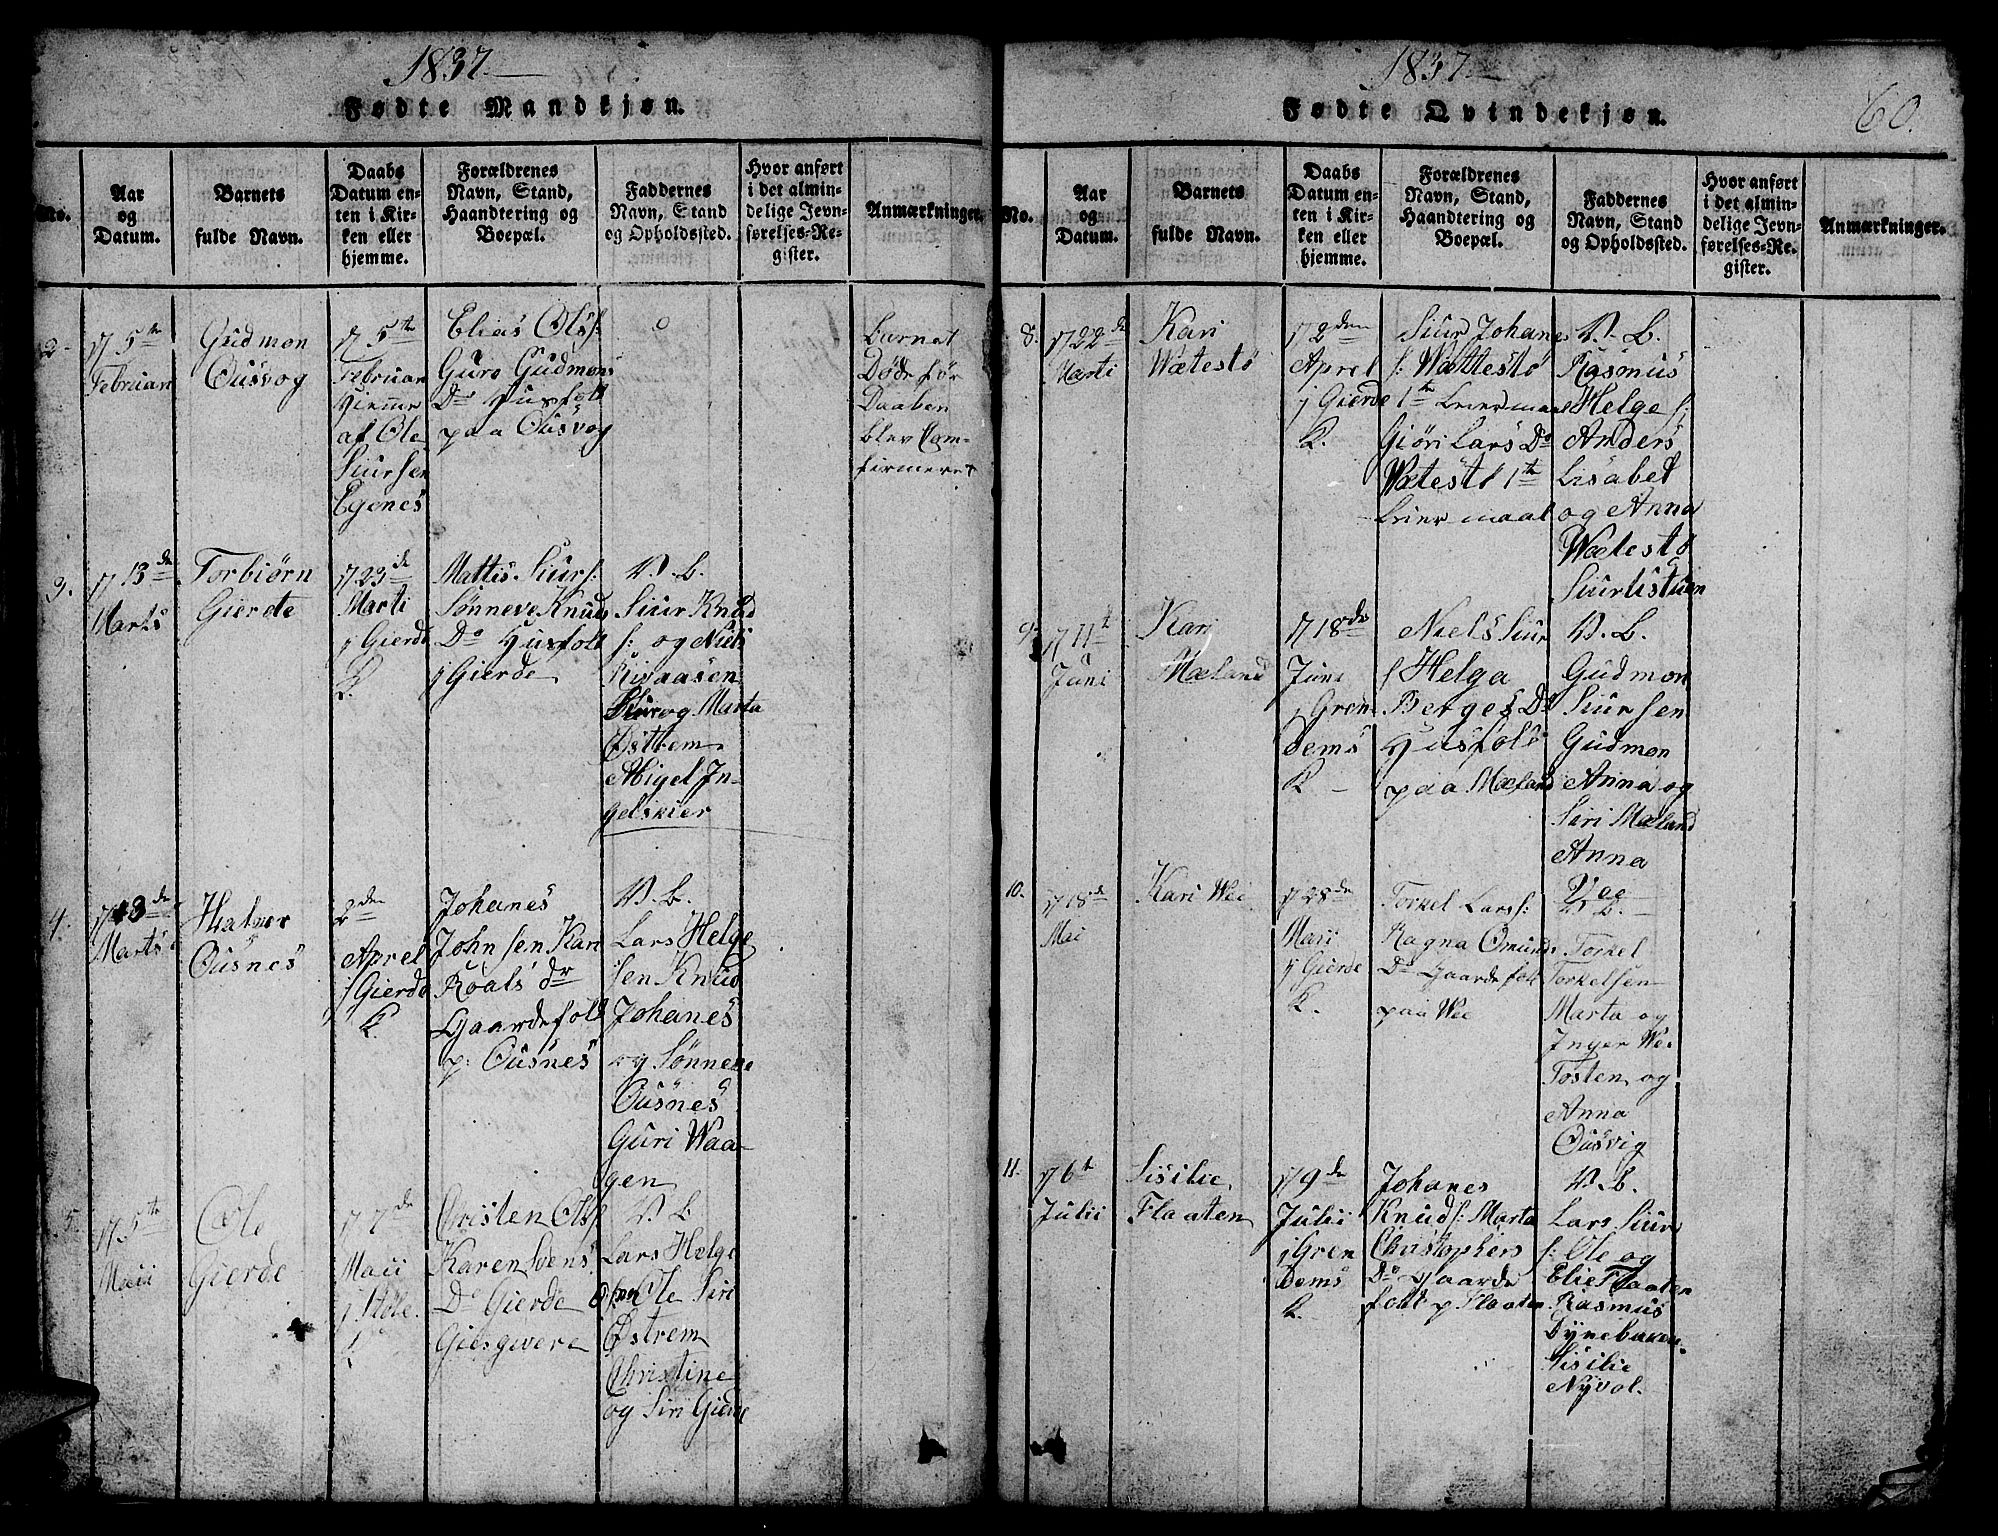 1837.
Fødte Mandkjøn.
No.
Aar
og
Datum.
Barnets
fulde Navn.
Daabs
Datum en-
ten i Kir-
ken eller
hjemme.
Forældrenes
Navn, Stand,
Haandtering og
Boepæl.
Faddernes
Navn, Stand
og Opholdssted.
Hvor anført
i det almin-
delige Jevn-
førelses-Re-
gister.
Anmærkninger.
2.
5te
Februari
Gudmon
Ousvog
5te
Februari
Hiemme
af Ole
Siursen
Egenes
Elias Ols f:
Guro Gudmons
Dr Husfolk
paa Ousvog
Barnet
Døde før
Daaben
blev Com-
firmeret
3.
13de
Marts
Torbiørn
Gierde
23de
Marti
j Gierde
K.
Mattis Siurs f:
Sønneve Knuds
Dr Husfolk
j Gierde
V. B.
Siur Knud
f: og Niels
og Marta
Østhem
Abigel In-
gelskier
4.
13de
Marts
Ousnes
2den
Aprel
j Gierde
K.
Johanes
Johnsen Kari
Roals dr
Gaardefolk
p: Ousnes
V. B.
Lars Helge
sen Knud
Johanes
og Sønneve
Ousnes
Guri Waa-
gen
5.
5te
Maii
Ole
Gierde
7de
Maii
j Støle
K
Christen Ols f
Karen Svens
Dr Gierde
Giesgwere
V. B
Lars Helge
Ole Siri
Østrem
Christine
og Siri Gierde
1837
Fødte Qvindekjøn.
60.
No.
Aar
og
Datum.
Barnets
fulde Navn.
Daabs
Datum en-
ten i Kir-
ken eller
hjemme.
Forældrenes
Navn, Stand,
Haandtering og
Boepæl.
Faddernes
Navn, Stand
og Opholdssted.
Hvor anført
i det almin-
delige Jevn-
førelses-Re-
gister.
Anmærkninger.
8.
22de
Marti
Kari
Wætestø
2den
Aprel
j Gierde
K.
Siur Johanes
f: Wættestø
1te Leiermaal
Giøri Lars Dr
Wætestø 1te
Leiermaal
V. B.
Rasmus
Helge f:
Anders
Lisabet
og Anna
Wætestø
9.
11t
Juni
Kari
Mæland
18de
Juni
j Gren
dems
K
Niels Siur
f Helga
Berges Dr
Husfolk
paa Mæland
V. B.
Gudmon
Siursen
Gudmon
Anna og
Siri Mæland
Anna
Vee
10.
18de
Mai
Kari Wee
28de
Maii
j Gierde
K.
Torkel Lars f:
Ragna Omunds
Dr Gaardefolk
paa Wee
V. B.
Torkel
Torkelsen
Marta og
Inger Wee
Tosten og
Anna
Ousvig
11.
6te
Julii
Sisilie
Flaaten
9de
Julii
j Gren
dems
K.
Johanes
Knud f: Marta
Christophers
Dr Gaarde
folk p Flaaten
V. B.
Lars Siur
f: Ole og
Elie Flaaten
Rasmus
Dynebakken
Sisilie
Nyvol.